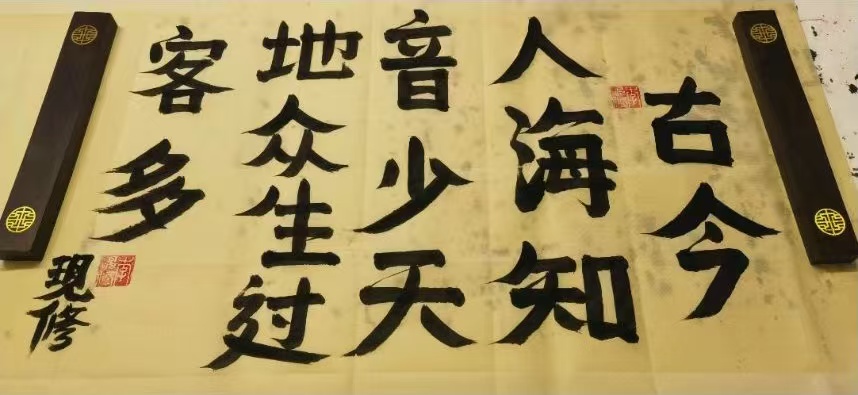 古今
人海知
音少天
地众生过
客多
现修